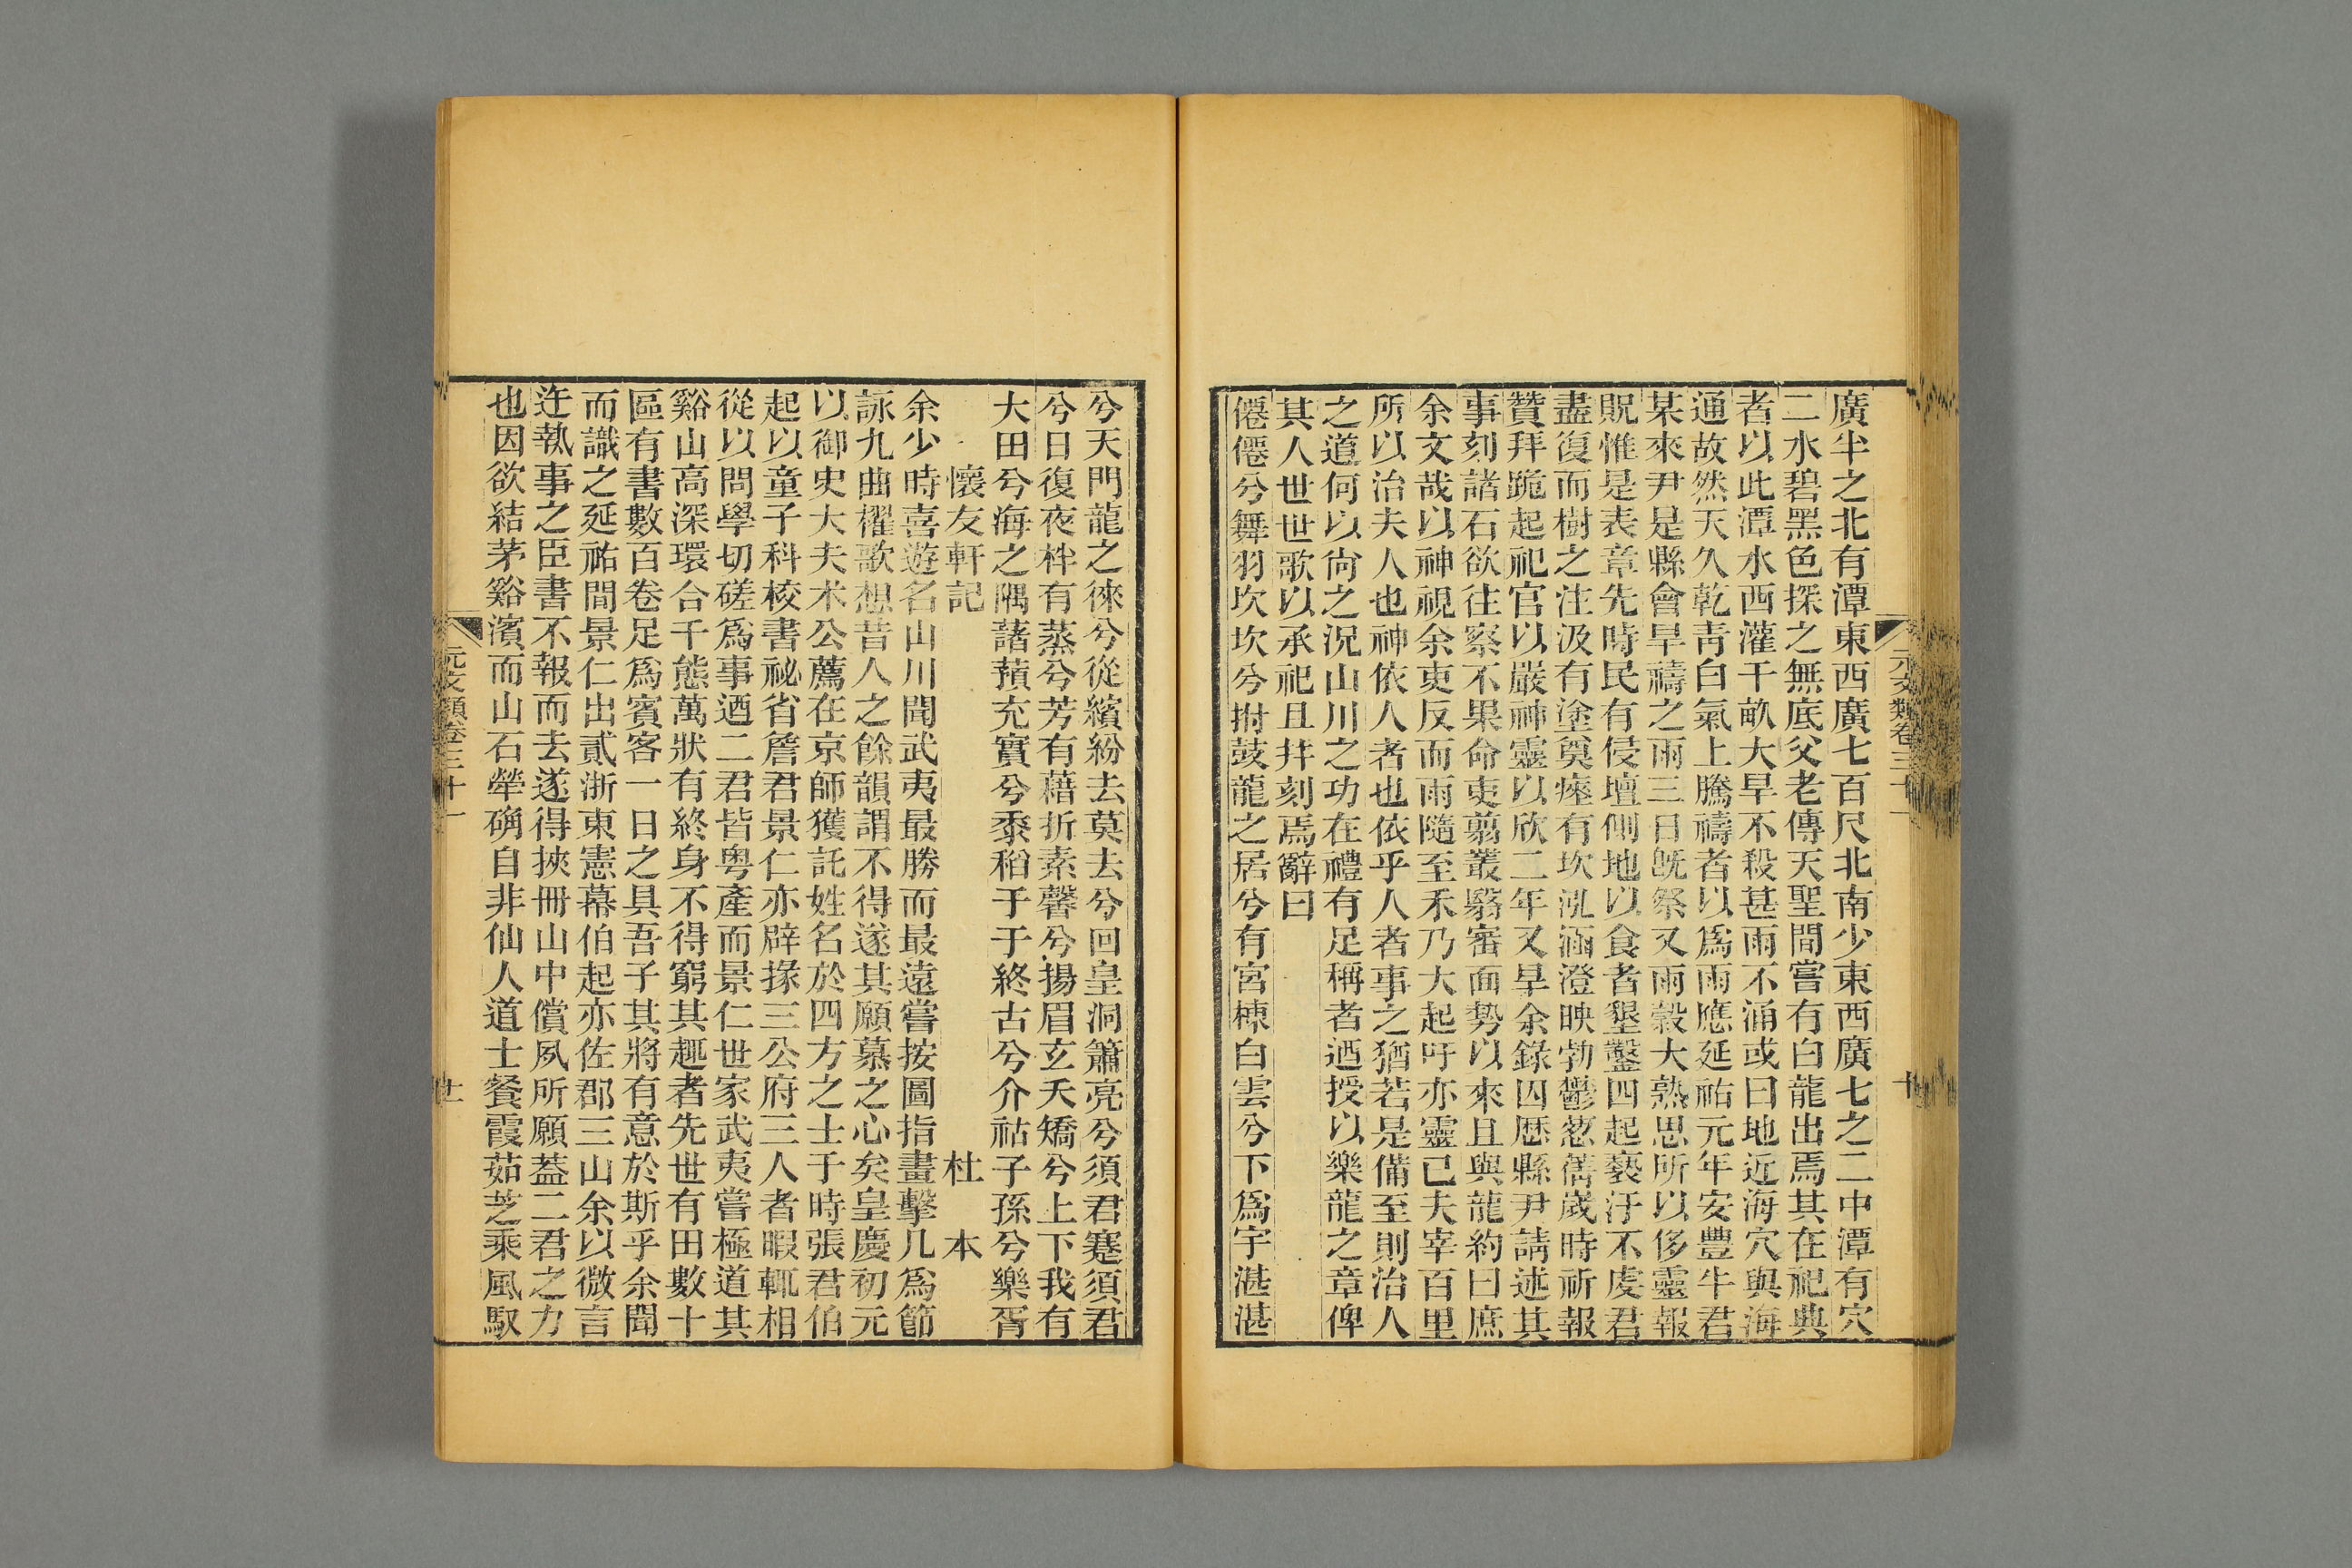 廣半之北有潭東西廣七百尺北南少東西廣七之二中潭有穴
二水碧黑色探之無底父老傳天聖間嘗有白龍出焉其在祀典
者以此潭水西灌千畝大旱不殺甚雨不涌或曰地近海穴與海
通故然天久乾靑白氣上騰禱者以爲雨應延祐元年安豐牛君
某來尹是縣會旱禱之雨三日旣祭又雨穀大熟思所以侈靈報
貺惟是表章先時民有侵壇側地以食者墾鑿四起褻汙不虔君
盡復而樹之注汲有塗奠瘞有坎氿涵澄映勃鬱葱蒨歲時祈報
贊拜跪起祀官以嚴神靈以欣二年又旱余錄囚歷縣尹請述其
事刻諸石欲往察不果命吏翦叢翳審面勢以來且與龍約曰庶
余文哉以神視余吏反而雨隨至禾乃大起吁亦靈已夫宰百里
所以治夫人也神依人者也依乎人者事之猶若是備至則治人
之道何以尙之況山川之功在禮有足稱者迺授以樂龍之章俾
其人世世歌以承祀且幷刻焉辭曰
僊僊兮舞羽坎坎兮拊鼓龍之居兮有宮楝白雲兮下爲宇湛湛
元文類卷三十一
十
兮天門龍之徠兮從繽紛去莫去兮回皇洞簫亮兮須君蹇須君
兮日復夜柈有蒸兮芳有藉折素馨兮揚眉玄夭矯兮上下我有
大田兮海之隅藷蕷充實兮黍稻于于終古兮介祜子孫兮樂胥
懷友軒記　杜　本
余少時喜遊名山川聞武夷最勝而最遠嘗按圖指畫擊几爲節
詠九曲櫂歌想昔人之餘韻謂不得遂其願慕之心矣皇慶初元
以御史大夫朮公薦在京師獲託姓名於四方之士于時張君伯
起以童子科校書祕省詹君景仁亦辟掾三公府三人者暇輒相
從以問學切磋爲事迺二君皆粤產而景仁世家武夷嘗極道其
谿山高深環合千態萬狀有終身不得窮其趣者先世有田數十
區有書數百卷足爲賓客一日之具吾子其將有意於斯乎余聞
而識之延祐間景仁出貳浙東憲幕伯起亦佐郡三山余以微言
迕執事之臣書不報而去遂得挾冊山中償夙所願葢二君之力
也因欲結茅谿濱而山石犖确自非仙人道士餐霞茹芝乘風馭
元文類卷三十一
十一